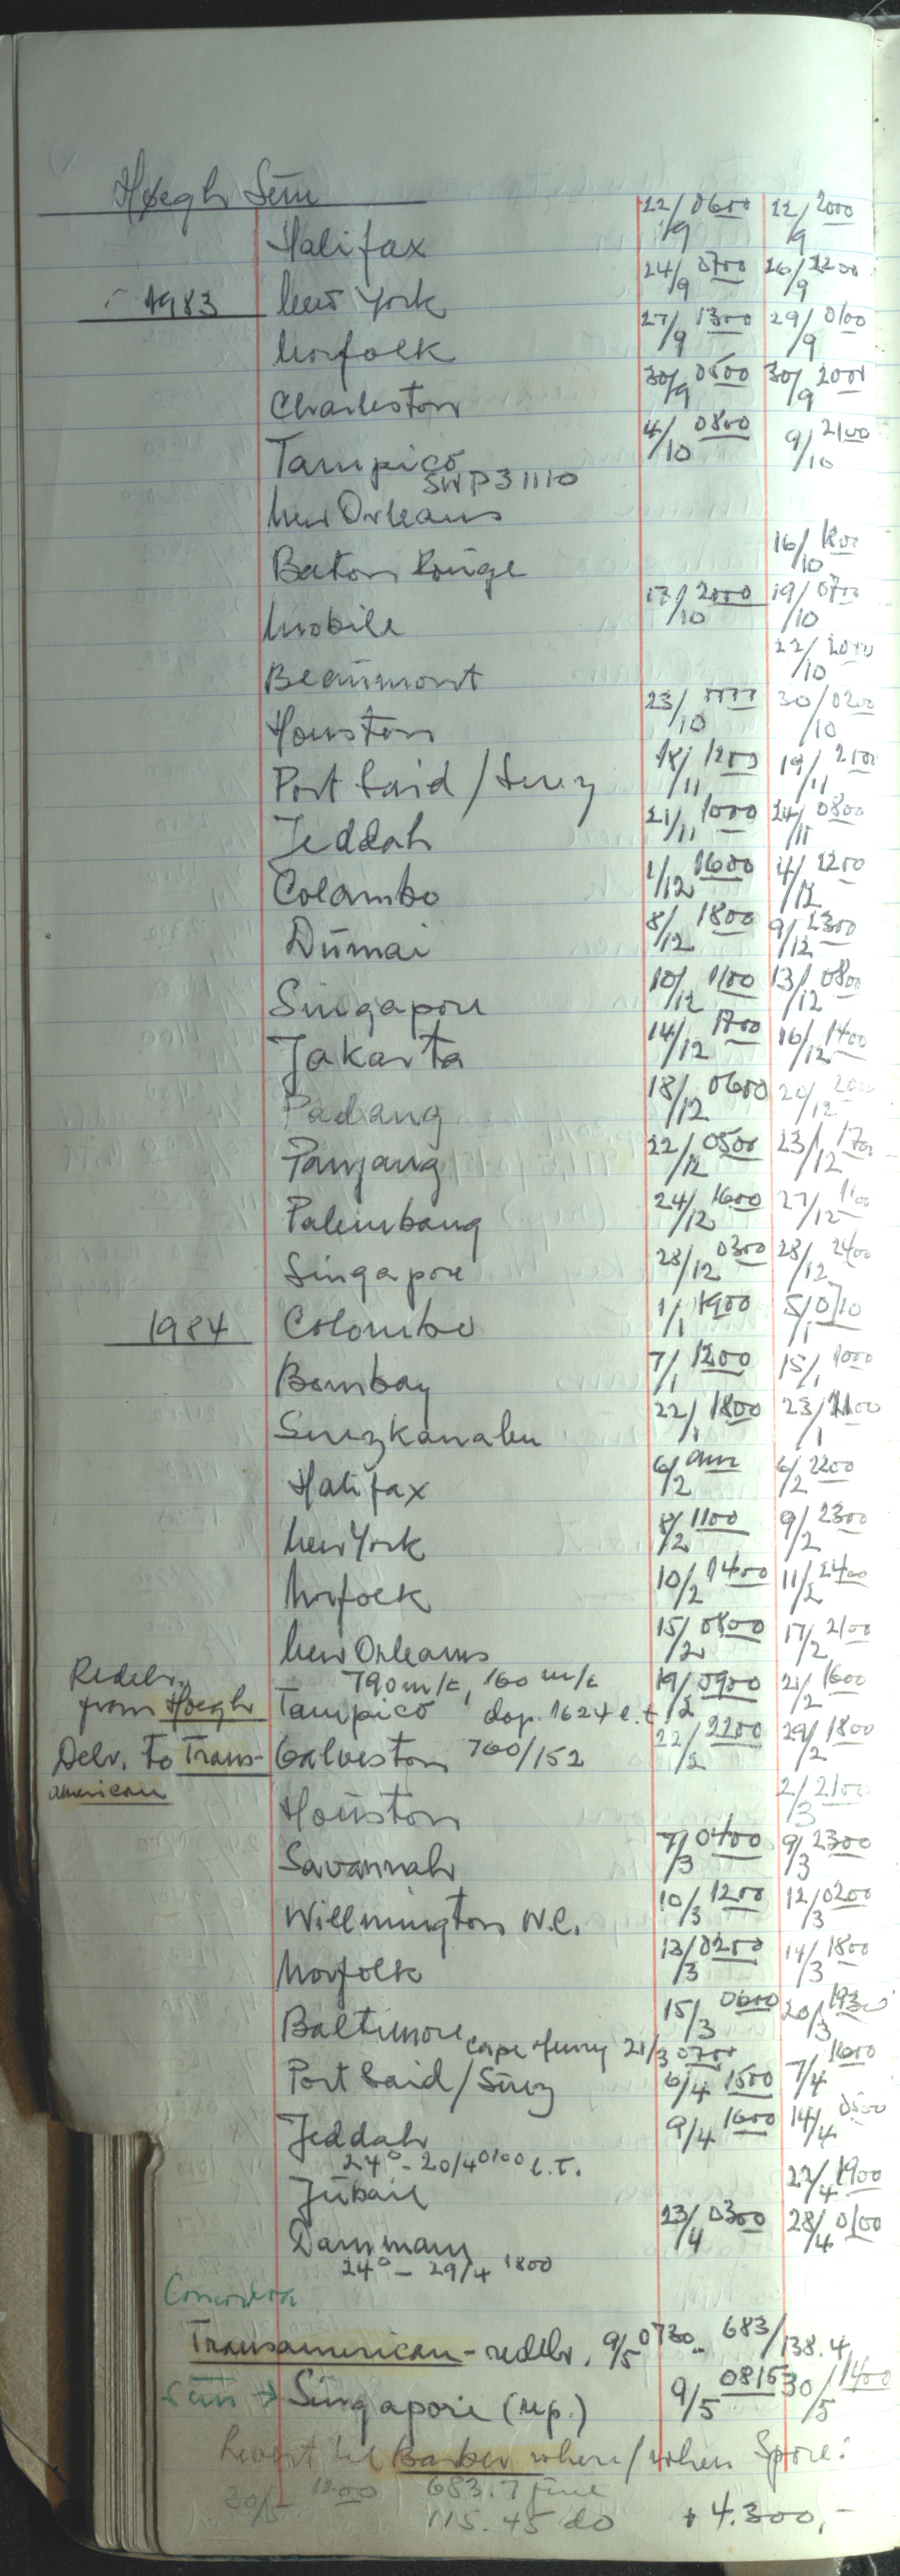 Høegh Sun
Halifax 22/9 0600 22/9 2000
1983 New York 24/9 0700 26/9 2200
Norfolk 27/9 1300 29/9 0100
Charleston 30/9 0500 30/9 2000
Tampico 4/10 0800 9/10 2100
SWP 31110
New Orleans
Baton Rouge 16/10
Mobile 17/10 2000 19/10 0700
Beaumont 22/10 2000
Houston 23/10 30/10 0200
Port Said/Suez 18/11 1200 19/11 2100
Jeddah 21/11 1000 24/11 0800
Colombo 1/12 1600 4/12 1200
Dumai 8/12 1800 9/12 2300
Singapore 10/12 1100 13/12 0800
Jakarta 14/12 1700 16/12 1400
Padang 18/12 0600 20/12
Panjang 22/12 0500 23/12 1700
Palembang 24/12 1600 27/12 1100
Singapore 28/12 0300 28/12 2400
1984 Colombo 1/1 1900 5/1 0710
Bombay 7/1 1200 15/1 1000
Suezkanalen 22/1 1800 23/1
Halifax 6/2 am 6/2 2200
New York 8/2 1100 9/2 2300
Norfolk 10/2 1400 11/2 2400
New Orleans 15/2 0800 17/2 2100
Redelv. 790 m/t, 160 m/t
from Høegh Tampico dop. 1624 l.t 19/2 0900 21/2 1600
Delv. to Trans- Galveston 760/152 22/2 2200 29/2 1800
american
Houston 2/3 2100
Savannah 7/3 0400 9/3 2300
Willmington N.C. 10/3 1200 12/3 0200
Norfolk 13/3 0200 14/3 1800
Baltimore 15/3 0600 20/3 1930
Cape Henry 21/3 0700
Port Said/Suez 6/4 1500 7/4 1600
Jeddah 9/4 1600 14/4 0500
24° - 20/4 0100 L.T.
Jubail 22/4 1900
Dammam 23/4 0300 28/4 0100
24° - 29/4 1800
Concordia
Transamerican - redelv. 9/5 0730 - 683/138.4
Sun → Singapore (rep.) 9/5 0815 30/5 1400
Levert til Barber where/when Spore:
30/5 1200 683.7 fuel
115.45 do + 4.300,-